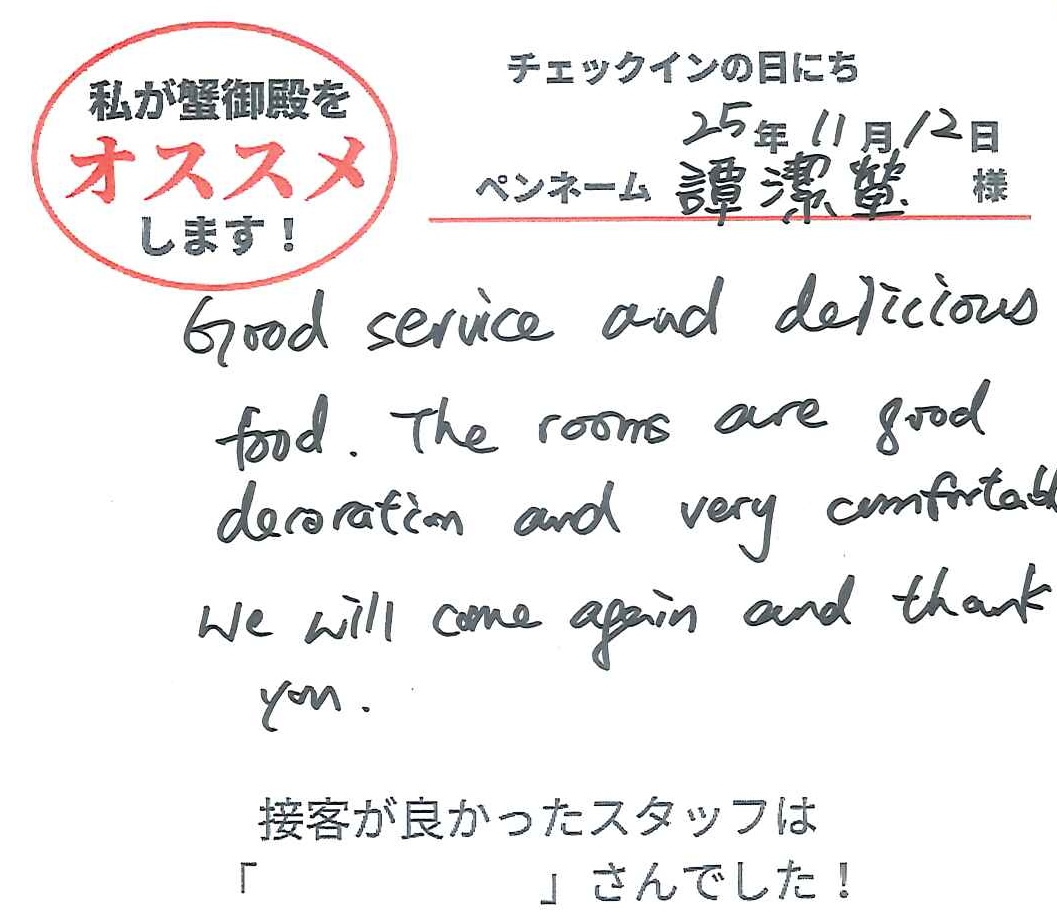 私が蟹御殿を
オススメ
します！
チェックインの日にち
25年11月12日
ペンネーム 譚潔瑩 様
Good service and delicious
food. The rooms are good
decoration and very comfortabl
We will come again and thank
you.
接客が良かったスタッフは
「 」さんでした！